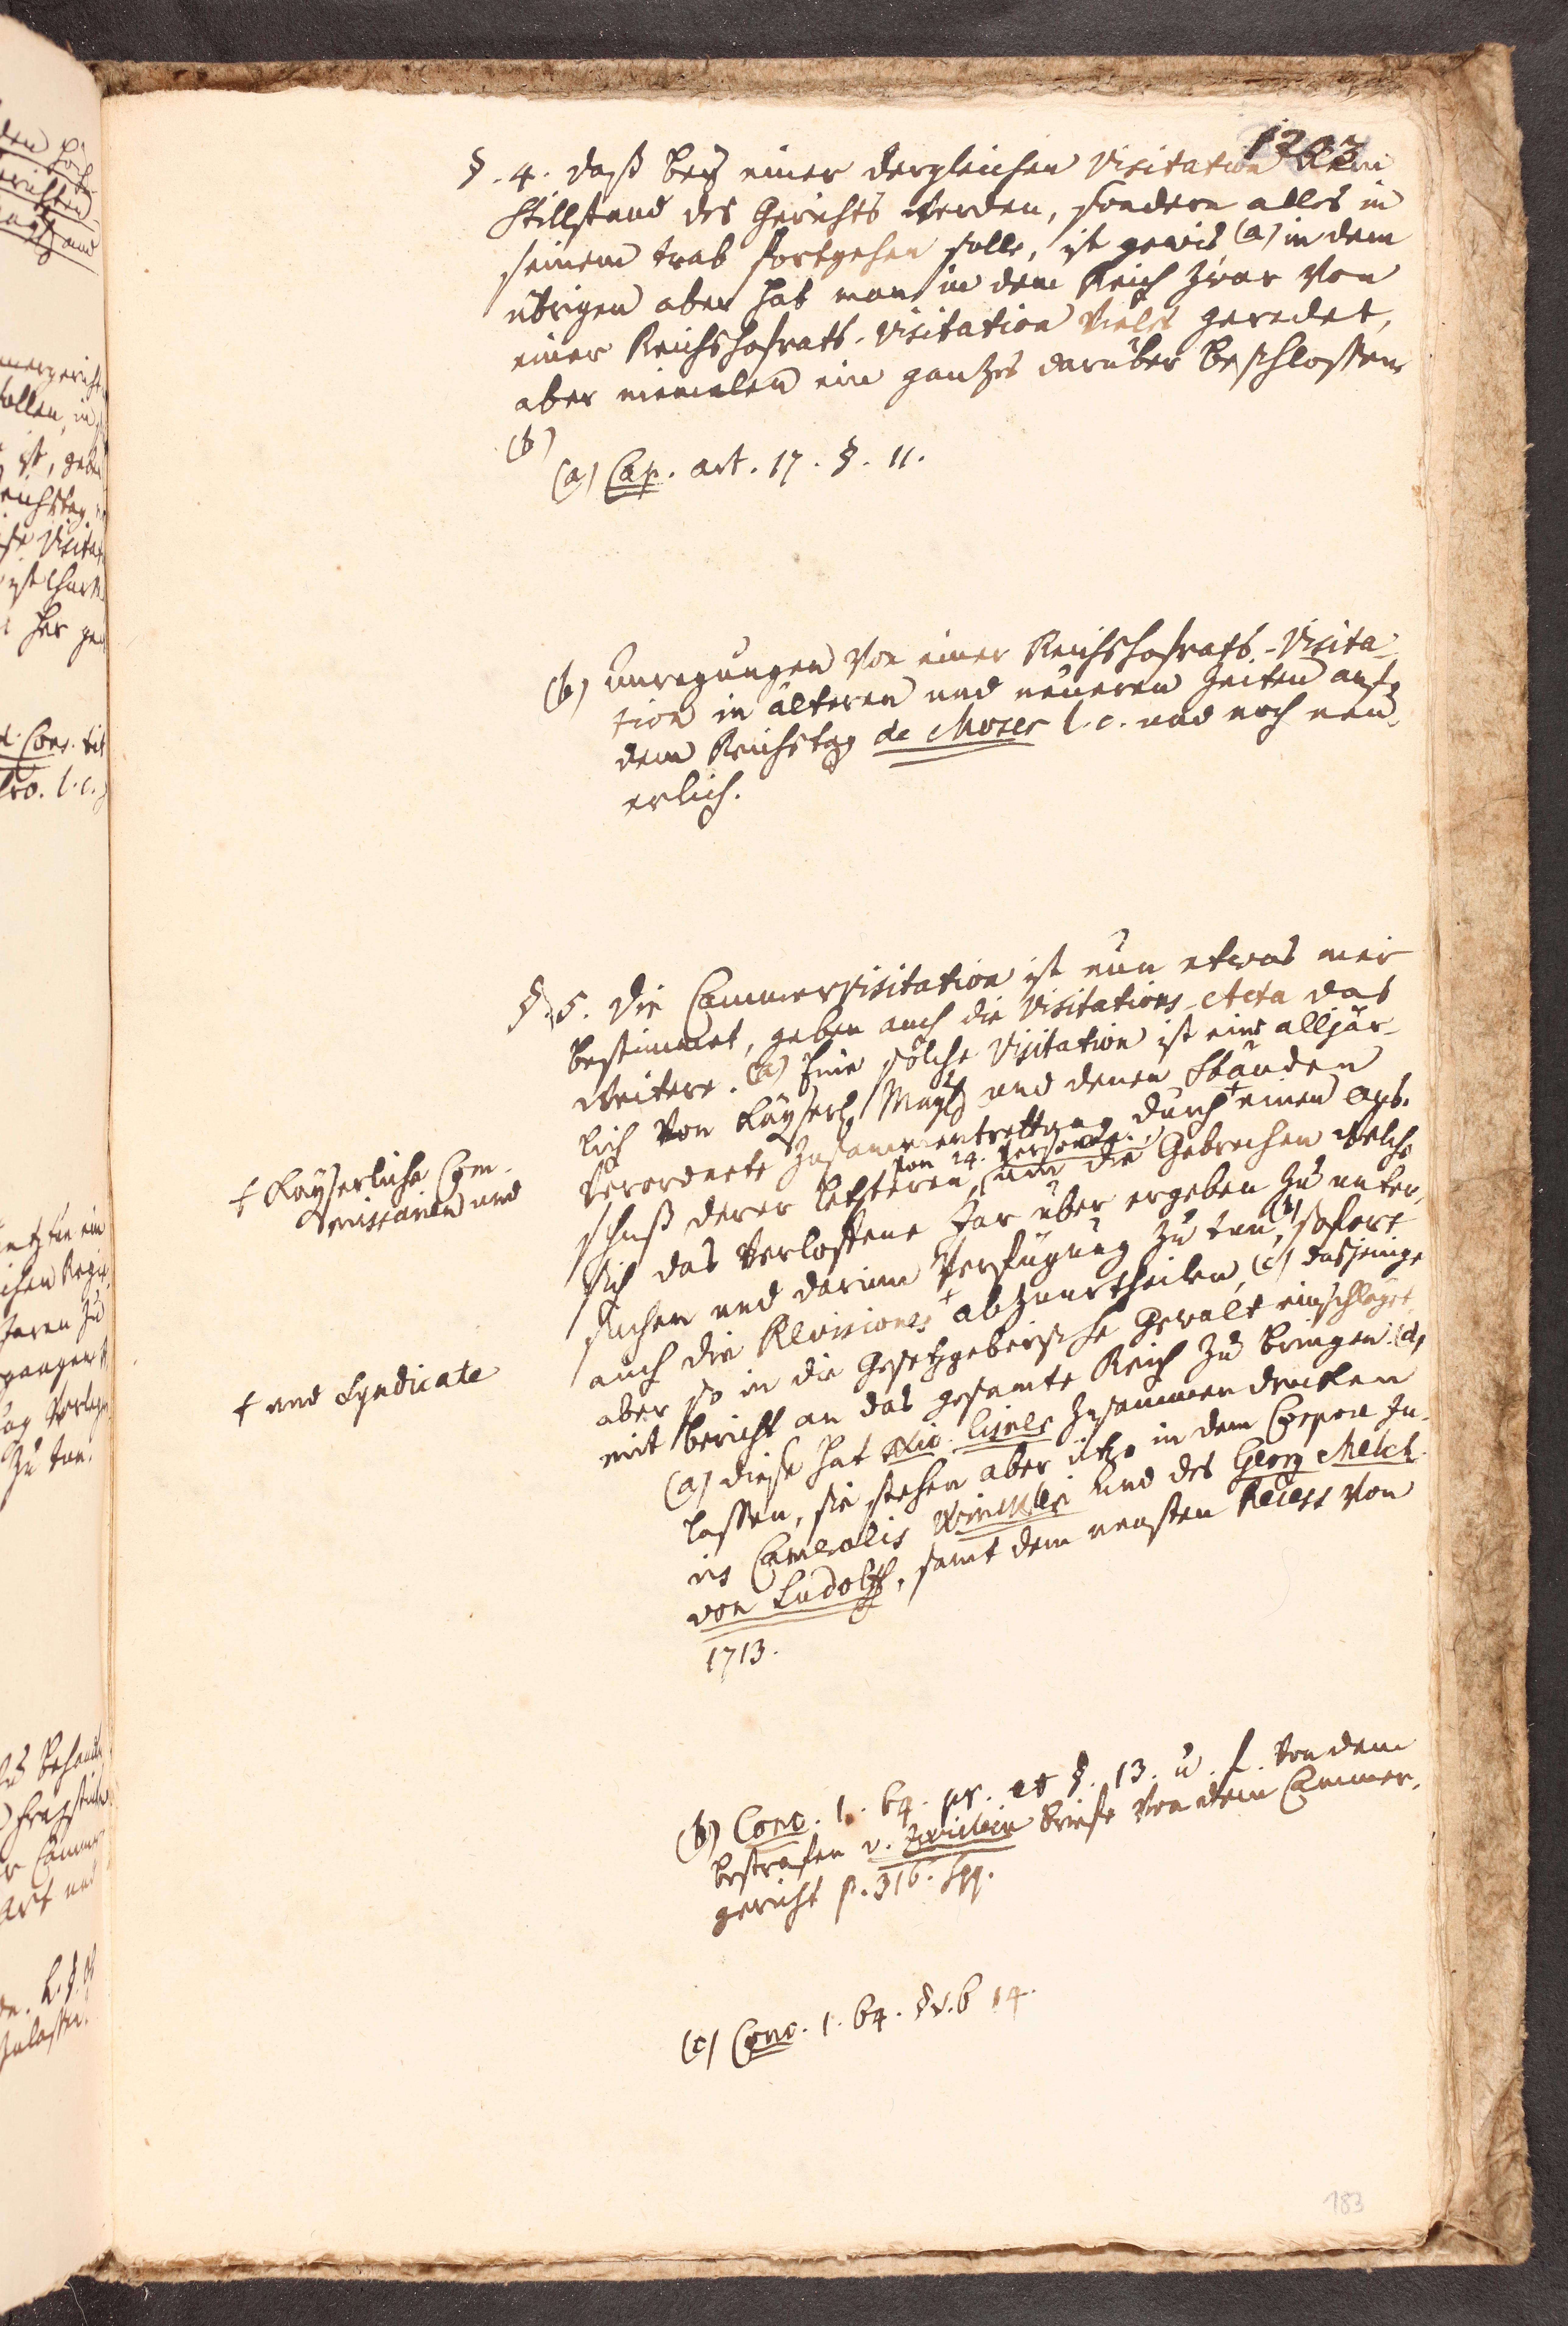 1203
§. 4. daß bey einer dergleichen Visitation kein
Stillstand des Gerichts werden, sondern alles in
seinem trab fortgehen solle, ist gewis (a) in dem
übrigen aber hat man in dem Reich zwar von
einer Reichshofraths-Visitation vieles geredet,
aber niemalen ein gantzes darüber beschlossen
(b)
(a) Cap. art. 17. §. 11.
(b) Anregungen von einer Reichshofraths-Visita-
tion in älteren und neueren Zeiten auf
dem Reichstag de Moser l. c. und noch neu-
erlich.
§. 5. Die Cammervisitation ist nun etwas mer
bestimmet, geben auch die Visitations-Acta das
weitere. (a) Eine solche Visitation ist eine alljär-
lich von Kayserl. Mayt. und denen Ständen
verordnete Zusammentrettung durch + einen Aus-
schuß derer letzteren, von 24. Personen, um die Gebrechen welche
sich das verlossene Jar über ergeben zu unter-
suchen und darinn Verfügung zu tun, (b) sofort
auch die Revisiones + abzuurtheilen, (c) dasjenige
aber so in die Gesetzgeberische Gewalt einschläget
mit Bericht an das gesamte Reich zu bringen. (d)
+ Kayserliche Com-
missarien und
+ und Syndicate
(a) diese hat Nic. Cisner zusammen drucken
lassen, sie stehen aber itzo in dem Corpore Ju-
ris Cameralis und des Georg Melch.
von Ludolff, samt dem neusten Recess von
1713.
(b) Conc. 1. 64. pr. et §. 13. u. f. von dem
bestrafen v. Zwirlein Briefe von dem Cammer-
gericht p. 316. sqq.
(c) Conc. 1. 64. 14.
183